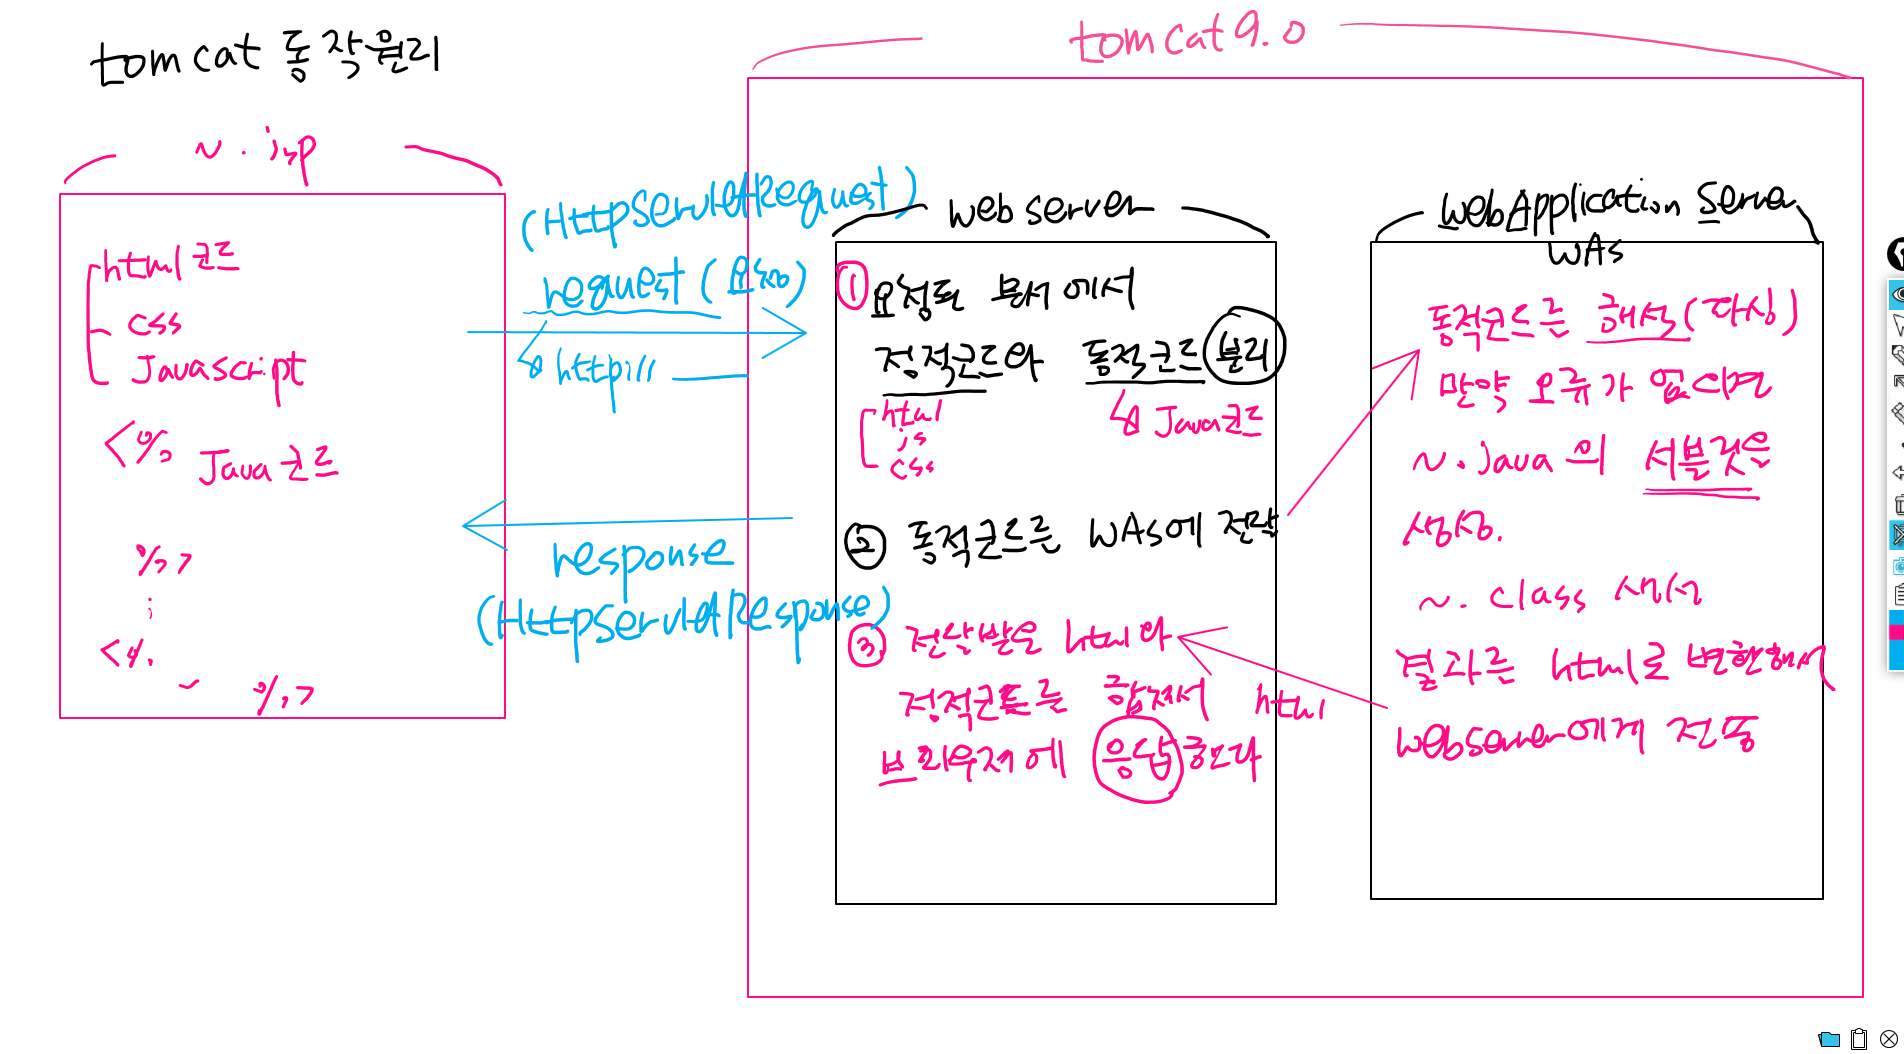 tomcat 동작원리
tomcat 9.0
~.jsp
html 코드
css
Javascript
<% Java 코드
%>
:
<%
~ %>
(HttpServletRequest)
request (요청)
http://
response
(HttpServletResponse)
web server
① 요청된 문서에서
정적코드와 동적코드 분리
html
js
css
Java코드
② 동적코드는 WAS에 전달
③ 전달받은 html와
정적코드를 합쳐서
브라우저에 응답한다
html
Web Application Server
WAS
동적코드를 해석(파싱)
만약 오류가 없으면
~.java의 서블릿을
생성.
~.class 생성
결과를 html로 변환해서
webserver에게 전송